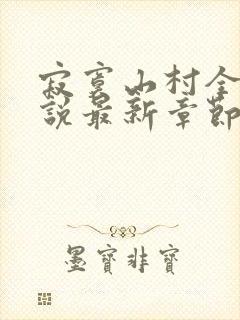 寂寞山村全
說最新章節
墨寶非寶